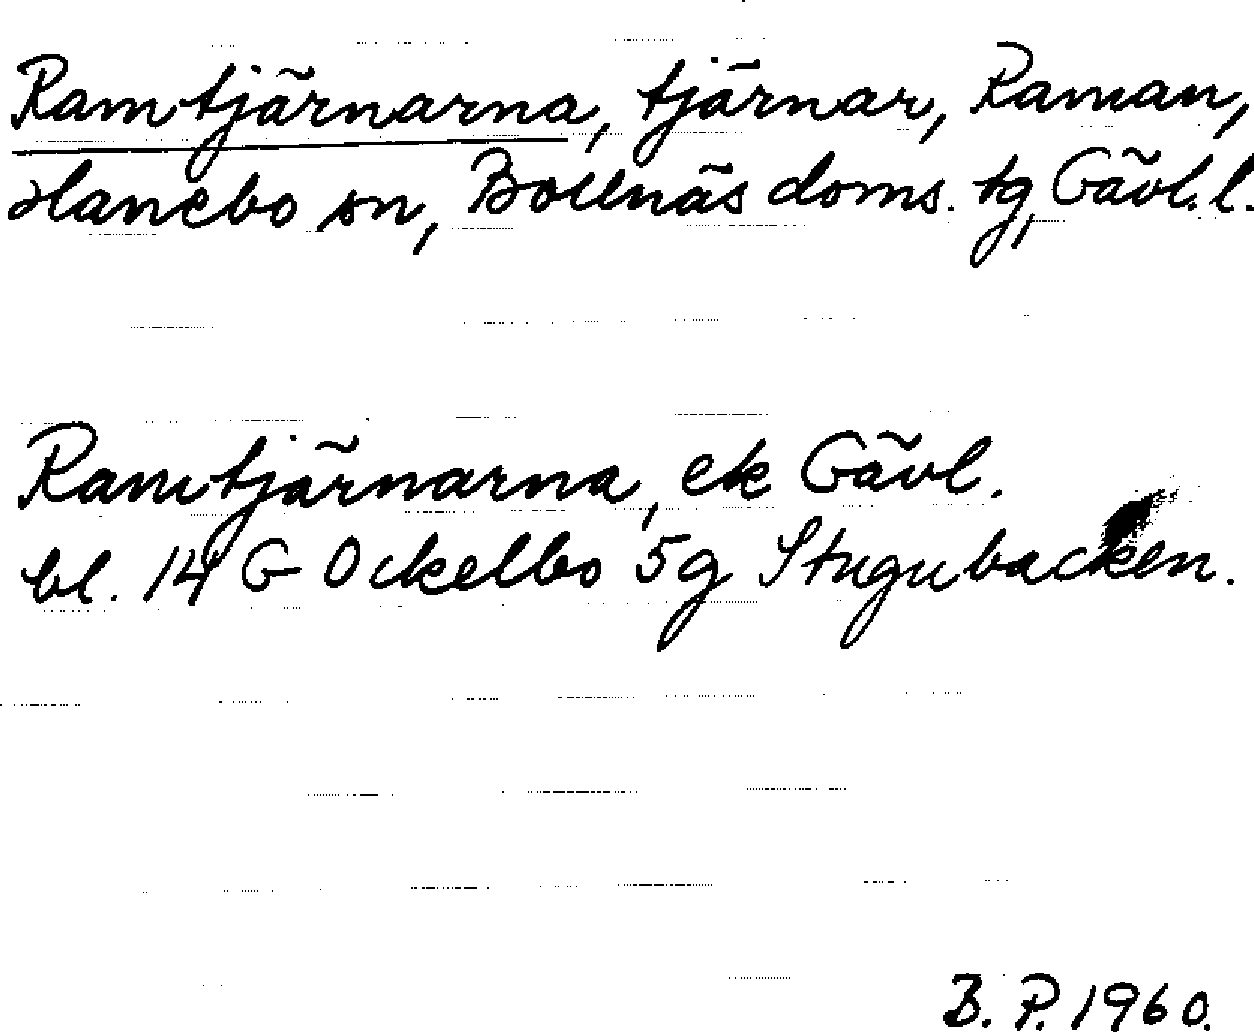 Ramtjärnarna, tjärnar, Raman,
Hanebo sn, Bollnäs doms. tg, Gävl.l.
Ramtjärnarna, ek Gävl.
bl. 14 G Ockelbo 5g Stugubacken.
B. P. 1960.